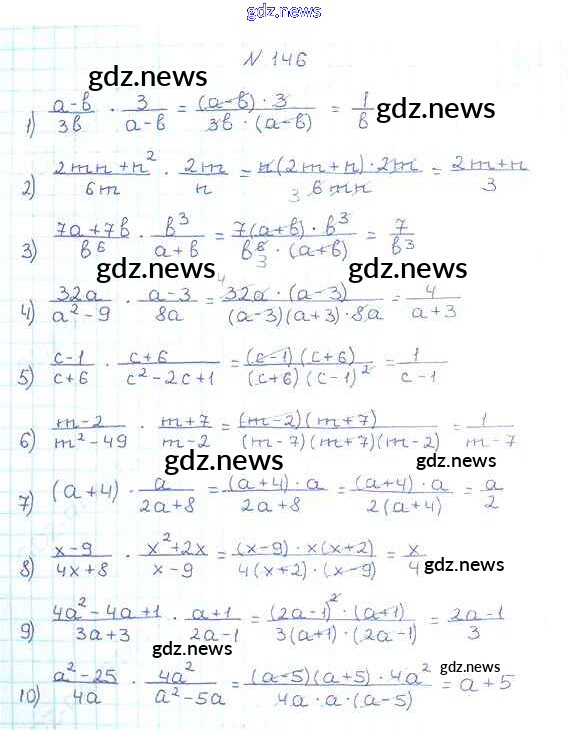 gdz.news
N 146
gdz.news
1) (a-b)/(3b) · 3/(a-b) = ((a-b) · 3)/(3b · (a-b)) = 1/b gdz.news
gdz.news
2) (2mn+n²)/(6m) · 2m/n = (n(2m+n) · 2m)/(6mn) 3 = (2m+n)/3
3) (7a+7b)/b⁶ · b³/(a+b) = (7(a+b) · b³)/(b⁶ 3 · (a+b)) = 7/b³
gdz.news gdz.news
4) 32a/(a²-9) · (a-3)/(8a) = (4 32a · (a-3))/((a-3)(a+3) · 8a) = 4/(a+3)
5) (c-1)/(c+6) · (c+6)/(c²-2c+1) = ((c-1)(c+6))/((c+6)(c-1)²) = 1/(c-1)
6) (m-2)/(m²-49) · (m+7)/(m-2) = ((m-2)(m+7))/((m-7)(m+7)(m-2)) = 1/(m-7)
gdz.news gdz.news
7) (a+4) · a/(2a+8) = ((a+4) · a)/(2a+8) = ((a+4) · a)/(2(a+4)) = a/2
8) (x-9)/(4x+8) · (x²+2x)/(x-9) = ((x-9) · x(x+2))/(4(x+2) · (x-9)) = x/4 gdz.news
9) (4a²-4a+1)/(3a+3) · (a+1)/(2a-1) = ((2a-1)² · (a+1))/(3(a+1) · (2a-1)) = (2a-1)/3
gdz.news gdz.news
10) (a²-25)/(4a) · 4a²/(a²-5a) = ((a-5)(a+5) · 4a²)/(4a · a · (a-5)) = a+5
gdz.news